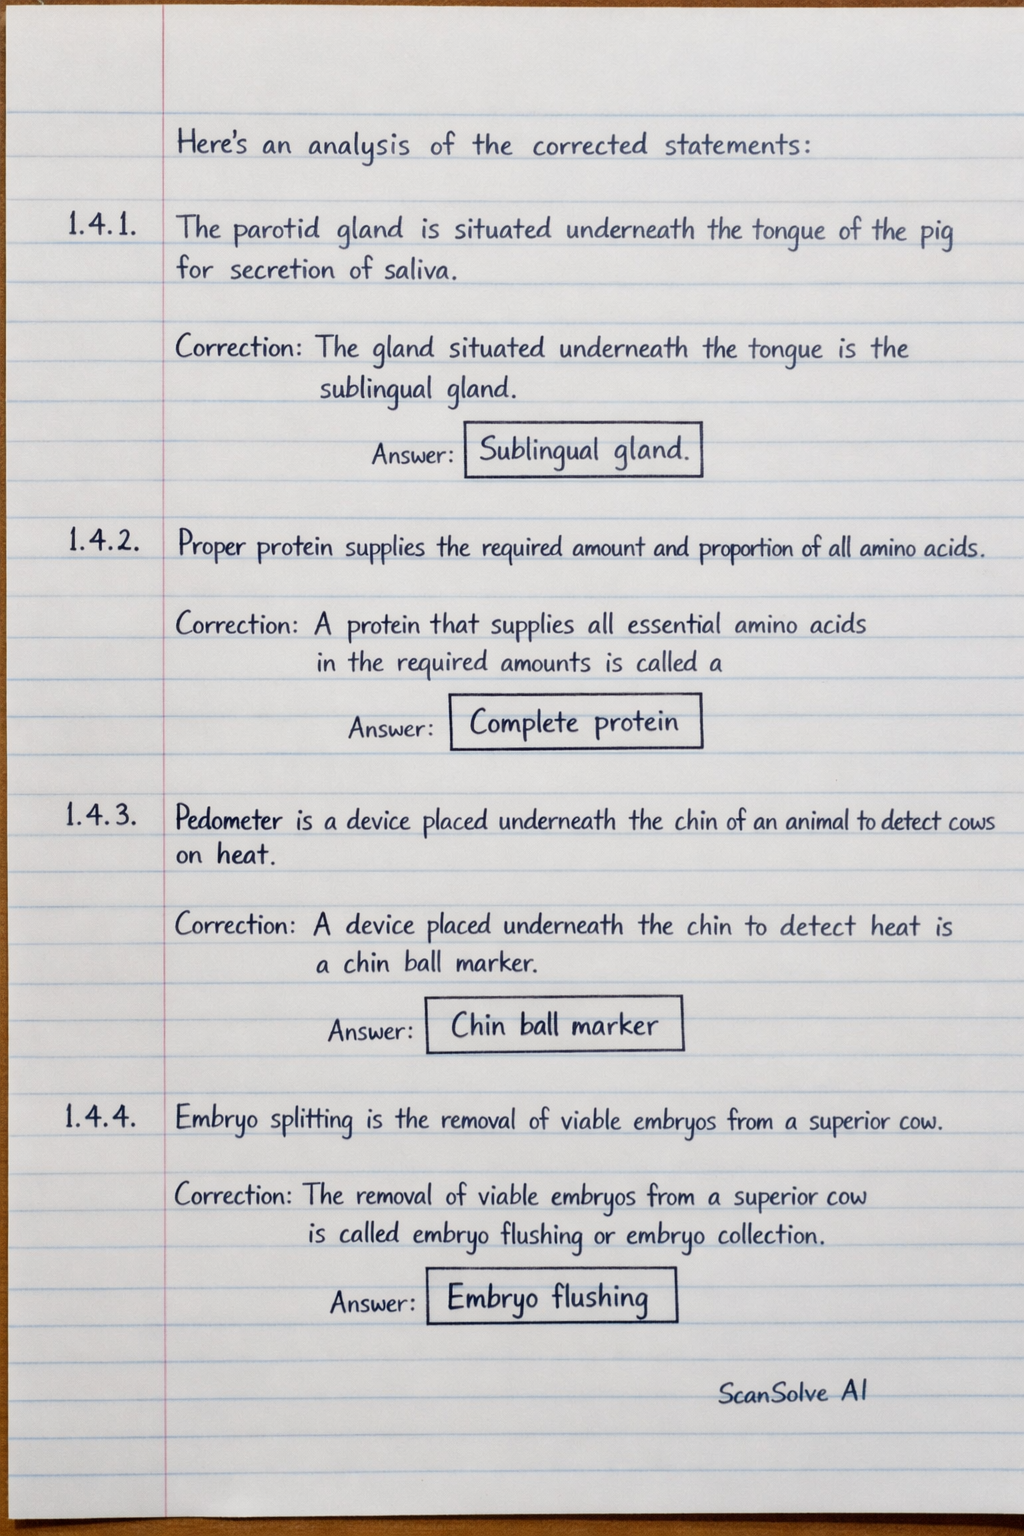 Here's an analysis of the corrected statements:
1.4.1. The parotid gland is situated underneath the tongue of the pig
for secretion of saliva.
Correction: The gland situated underneath the tongue is the
sublingual gland.
Answer: Sublingual gland.
1.4.2. Proper protein supplies the required amount and proportion of all amino acids.
Correction: A protein that supplies all essential amino acids
in the required amounts is called a
Answer: Complete protein
1.4.3. Pedometer is a device placed underneath the chin of an animal to detect cows
on heat.
Correction: A device placed underneath the chin to detect heat is
a chin ball marker.
Answer: Chin ball marker
1.4.4. Embryo splitting is the removal of viable embryos from a superior cow.
Correction: The removal of viable embryos from a superior cow
is called embryo flushing or embryo collection.
Answer: Embryo flushing
ScanSolve AI